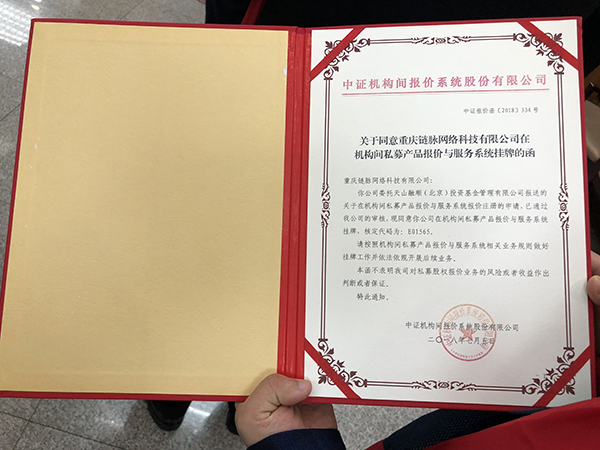 中证机构间报价系统股份有限公司
中证报价函〔2018〕334 号
关于同意重庆链脉网络科技有限公司在
机构间私募产品报价与服务系统挂牌的函
重庆链脉网络科技有限公司：
你公司委托天山融顺（北京）投资基金管理有限公司报送的
关于在机构间私募产品报价与服务系统报价注册的申请，已通过
我公司的审核。现同意你公司在机构间私募产品报价与服务系统
挂牌，核定代码为：E01565。
请按照机构间私募产品报价与服务系统相关业务规则做好
挂牌工作并依法依规开展后续业务。
本函不表明我司对私募股权报价业务的风险或者收益作出
判断或者保证。
特此通知。
中证机构间报价系统股份有限公司
二〇一八年七月五日